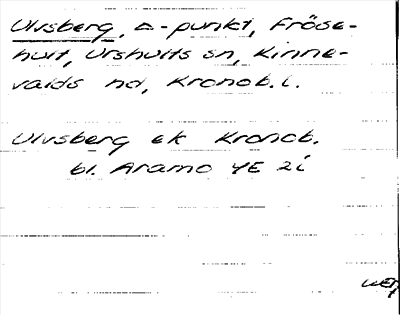 Ulvsberg, △-punkt, Fröse-
hult, Urshults sn, Kinne-
valds hd, Kronob. l.
Ulvsberg ek Kronob.
bl. Aramo 4E 2i